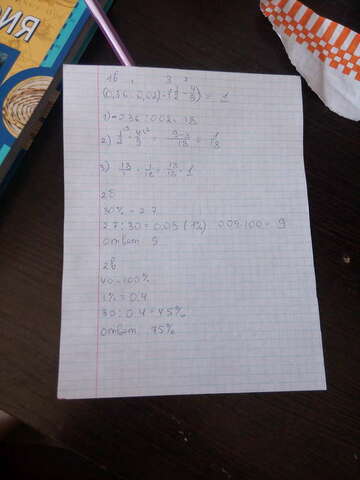 RNO
1б
(0,36 : 0,02) · (1/2 - 4/9) = 1
1) 0,36 : 0,02 = 18
2) 1/2 - 4/9 = 9-8/18 = 1/18
3) 18/1 · 1/18 = 18/18 = 1
2б
30% = 2.7
2.7 : 30 = 0.09 (1%) 0.09·100 = 9
ответ 9
2в
40 = 100%
1% = 0.4
30 : 0.4 = 75%
ответ 75%